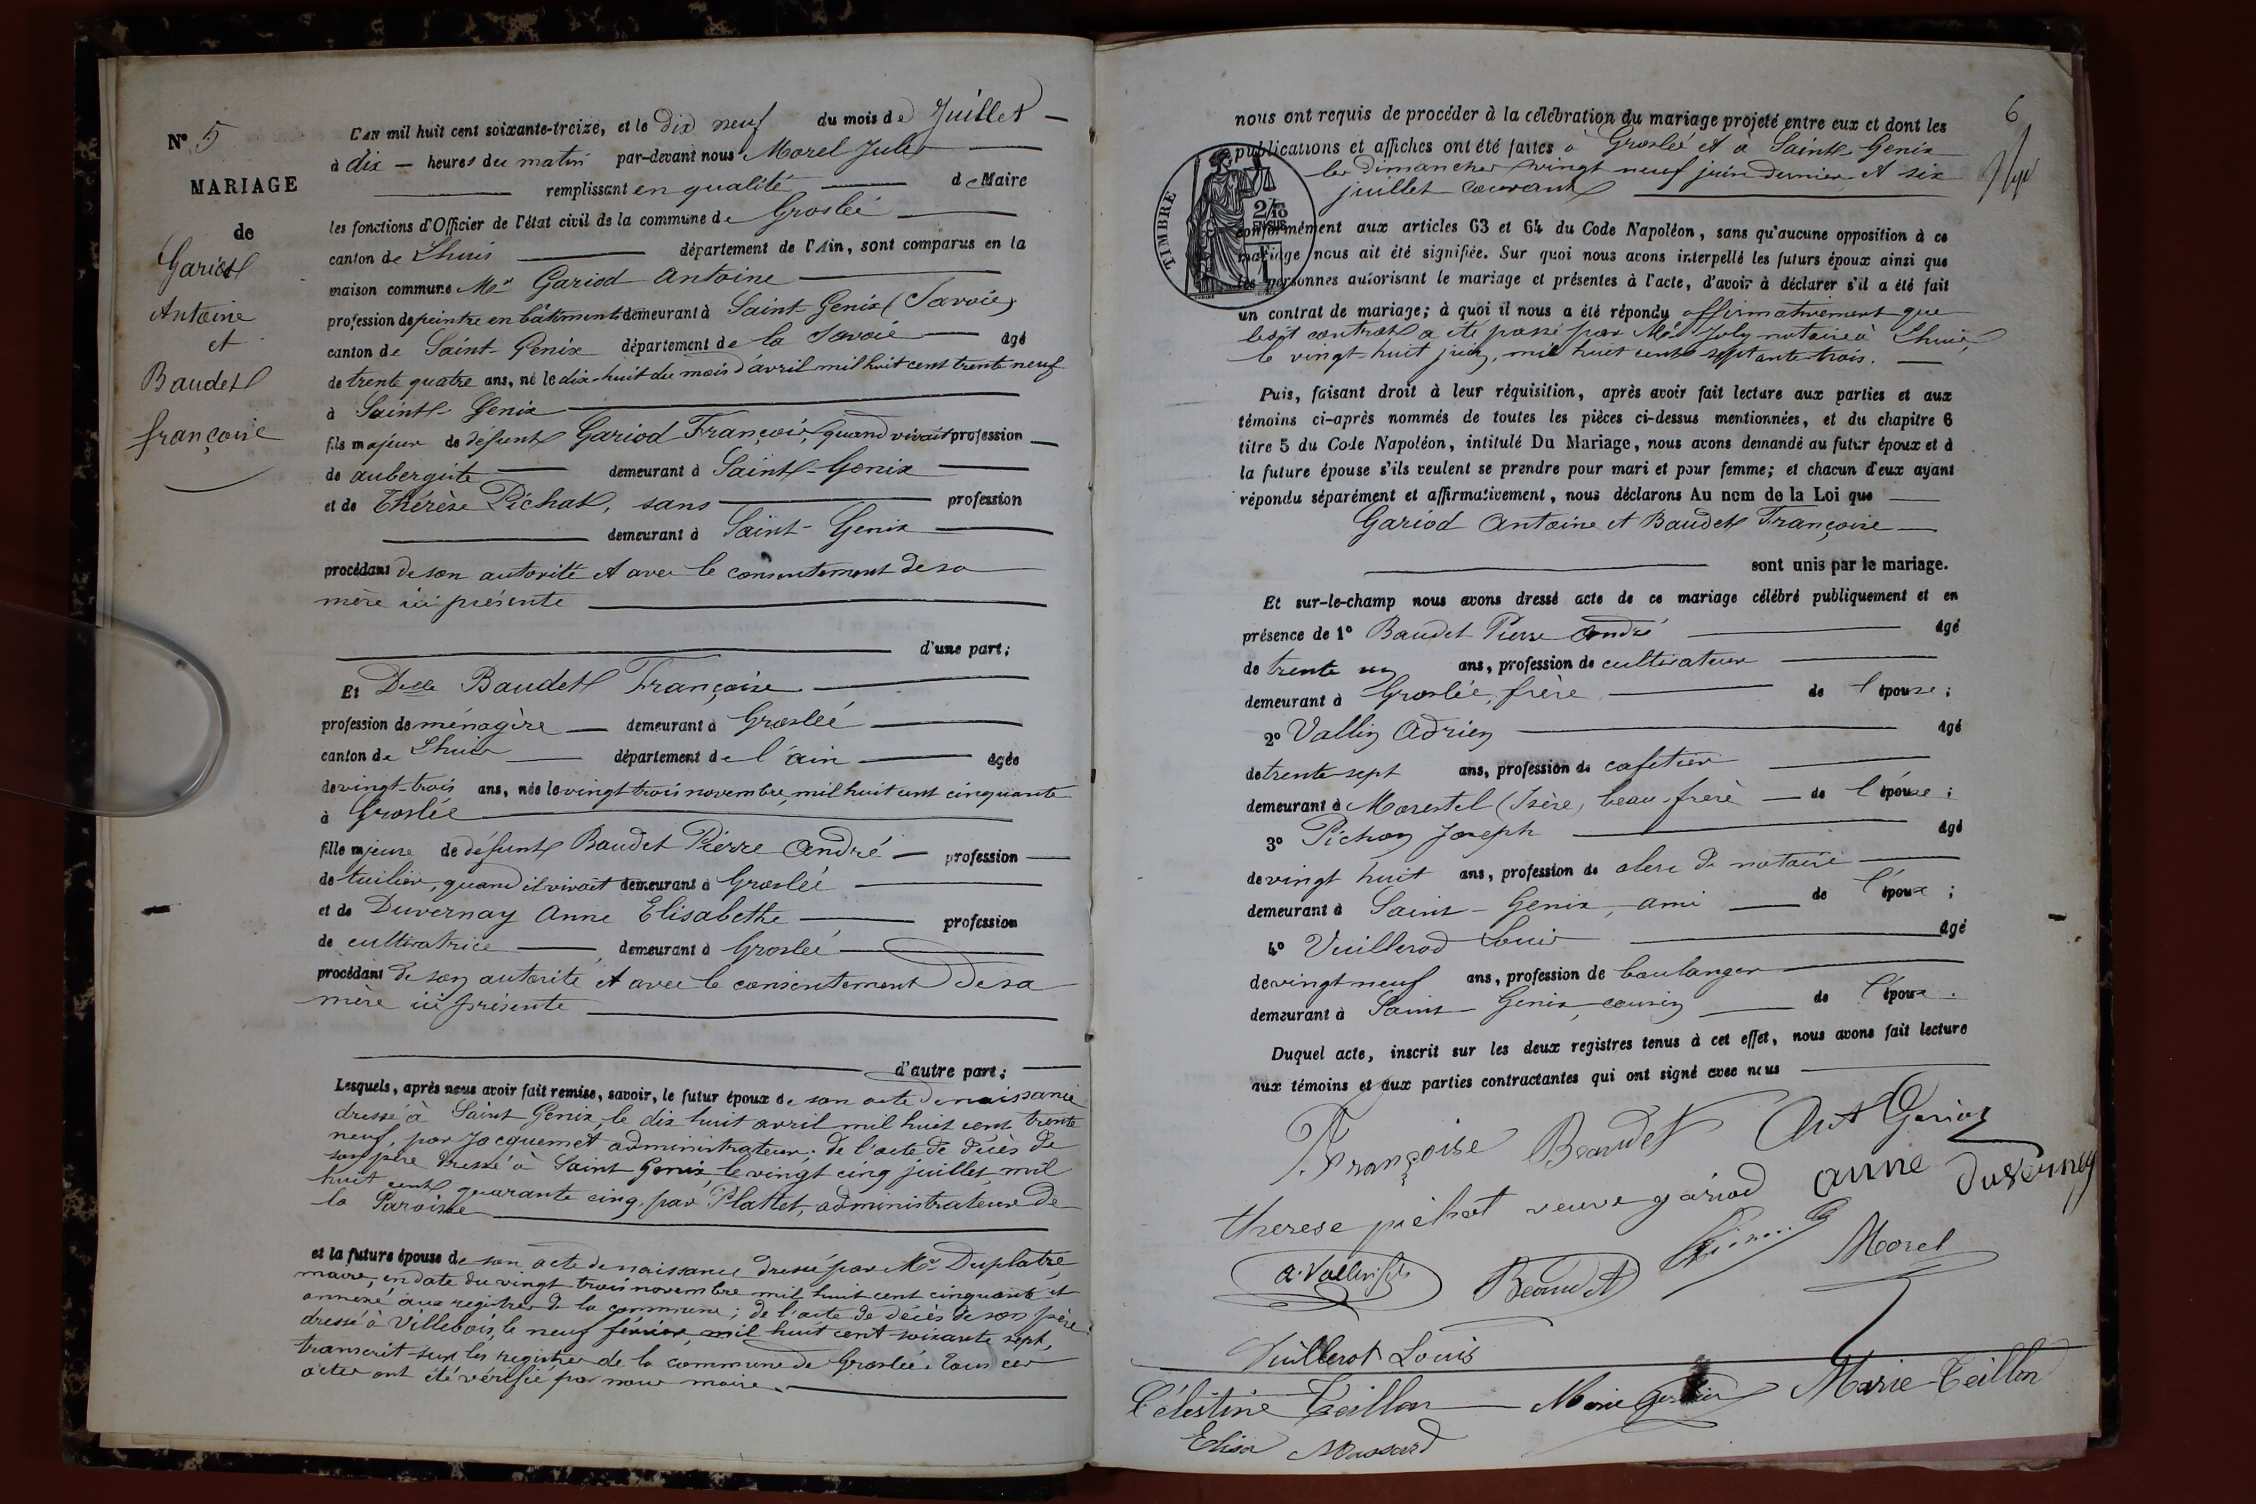 N° 5
MARIAGE
de
Gariod
Antoine
et
Baudet
françoise
L'an mil huit cent soixante-treize, et le dix neuf du mois de Juillet
à dix heures du matin par-devant nous Morel Jules
remplissant en qualité de Maire
les fonctions d'Officier de l'état civil de la commune de Groslée
canton de Lhuis département de l'Ain, sont comparus en la
maison commune Mr Gariod Antoine
profession de peintre en bâtiments demeurant à Saint Genix (Savoie)
canton de Saint-Genix département de la Savoie âgé
de trente quatre ans, né le dix-huit du mois d'avril mil huit cent trente neuf
à Saint Genix
fils majeur de défunt Gariod François, quand vivait profession
de aubergiste demeurant à Saint-Genix
et de Thérèse Pichat, sans profession
demeurant à Saint-Genix
procédant de son autorité et avec le consentement de sa
mère ici présente
d'une part;
Et Delle Baudet Françoise
profession de ménagère demeurant à Groslée
canton de Lhuis département de l'ain âgée
de vingt-trois ans, née le vingt trois novembre, mil huit cent cinquante
à Groslée
fille majeure de défunt Baudet Pierre André profession
de tuilier, quand il vivait demeurant à Groslée
et de Duvernay Anne Elisabethe profession
de cultivatrice, demeurant à Groslée
procédant de son autorité et avec le consentement de sa
mère ici présente
d'autre part;
Lesquels, après nous avoir fait remise, savoir, le futur époux de son acte de naissance
dressé à Saint Genix, le dix huit avril mil huit cent trente
neuf, par Jacquemet administrateur; de l'acte de décès de
son père dressé à Saint Genix, le vingt cinq juillet, mil
huit cent quarante cinq, par Plattet, administrateur de
la Paroisse
et la future épouse de son acte de naissance dressé par Mr Duplatre,
maire, en date du vingt trois novembre mil huit cent cinquante et
annexé aux registres de la commune; de l'acte de décès de son père
dressé à Villebois, le neuf février, mil huit cent soixante sept,
transcrit sur les registres de la commune de Groslée. Tous ces
actes ont été vérifiés par nous maire.
6
nous ont requis de procéder à la célébration du mariage projeté entre eux et dont les
publications et affiches ont été faites à Groslée et à Saint Genix
les dimanches vingt neuf juin dernier et six
juillet courant
TIMBRE
2/10 EN SUS
conformément aux articles 63 et 64 du Code Napoléon, sans qu'aucune opposition à ce
mariage nous ait été signifiée. Sur quoi nous avons interpellé les futurs époux ainsi que
les personnes autorisant le mariage et présentes à l'acte, d'avoir à déclarer s'il a été fait
un contrat de mariage; à quoi il nous a été répondu affirmativement que
ledit contrat a été passé par Me Joly notaire à Lhuis,
le vingt-huit juin, mil huit cent septante-trois.
Puis, faisant droit à leur réquisition, après avoir fait lecture aux parties et aux
témoins ci-après nommés de toutes les pièces ci-dessus mentionnées, et du chapitre 6
titre 5 du Code Napoléon, intitulé Du Mariage, nous avons demandé au futur époux et à
la future épouse s'ils veulent se prendre pour mari et pour femme; et chacun d'eux ayant
répondu séparément et affirmativement, nous déclarons Au nom de la Loi que
Gariod Antoine et Baudet Françoise
sont unis par le mariage.
Et sur-le-champ nous avons dressé acte de ce mariage célébré publiquement et en
présence de 1° Baudet Pierre André âgé
de trente un ans, profession de cultivateur
demeurant à Groslée, frère de l'épouse;
2° Vallin Adrien âgé
de trente-sept ans, profession de cafetier
demeurant à Morestel (Isère) beau-frère de l'épouse;
3° Pichon Joseph âgé
de vingt huit ans, profession de clerc de notaire
demeurant à Saint-Genix, ami de l'époux;
4° Vuillerod Louis âgé
de vingt neuf ans, profession de boulanger
demeurant à Saint-Genix, cousin de l'époux.
Duquel acte, inscrit sur les deux registres tenus à cet effet, nous avons fait lecture
aux témoins et aux parties contractantes qui ont signé avec nous
Françoise Beaudet Ant Gariod
therese pichat veuve gariod anne duvernay
a. Vallin fils Beaudet Morel
Vuillerot Louis
Célestine Teillon Marie Marie Teillon
Elisa Massard